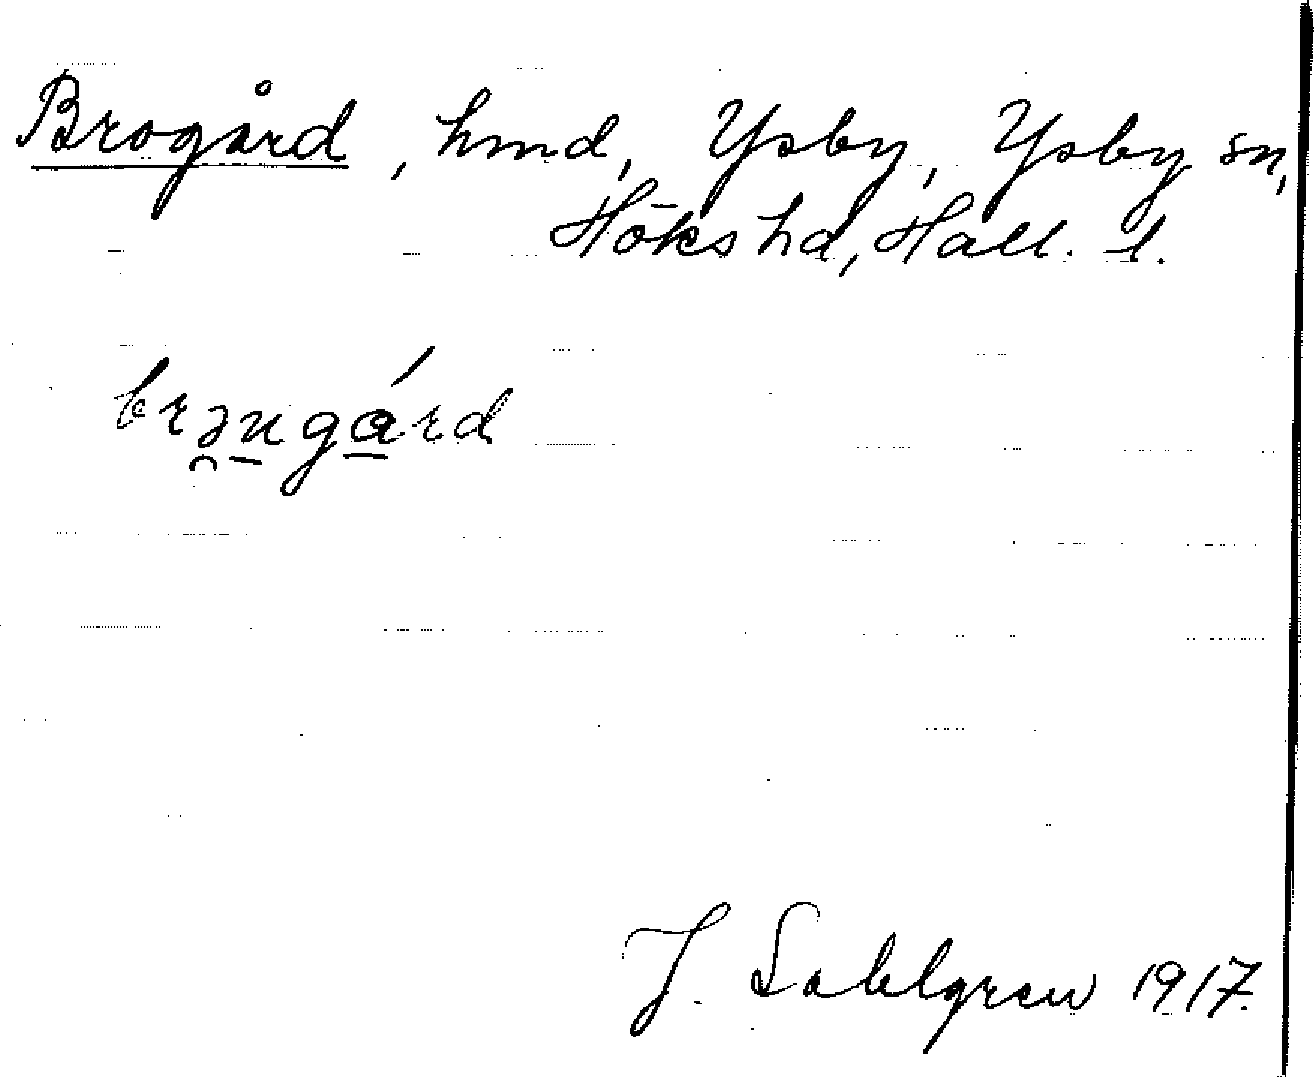 Brogård, hmd, Ysby, Ysby sn,
Höks hd, Hall. l.
brə̯u̱gá̱rd
J. Sahlgren 1917.